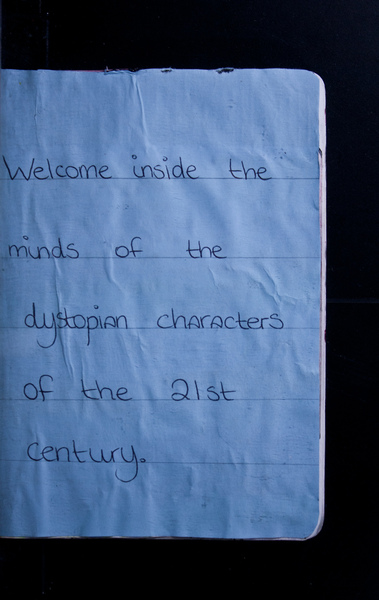 Welcome inside the
minds of the
dystopian characters
of the 21st
century.